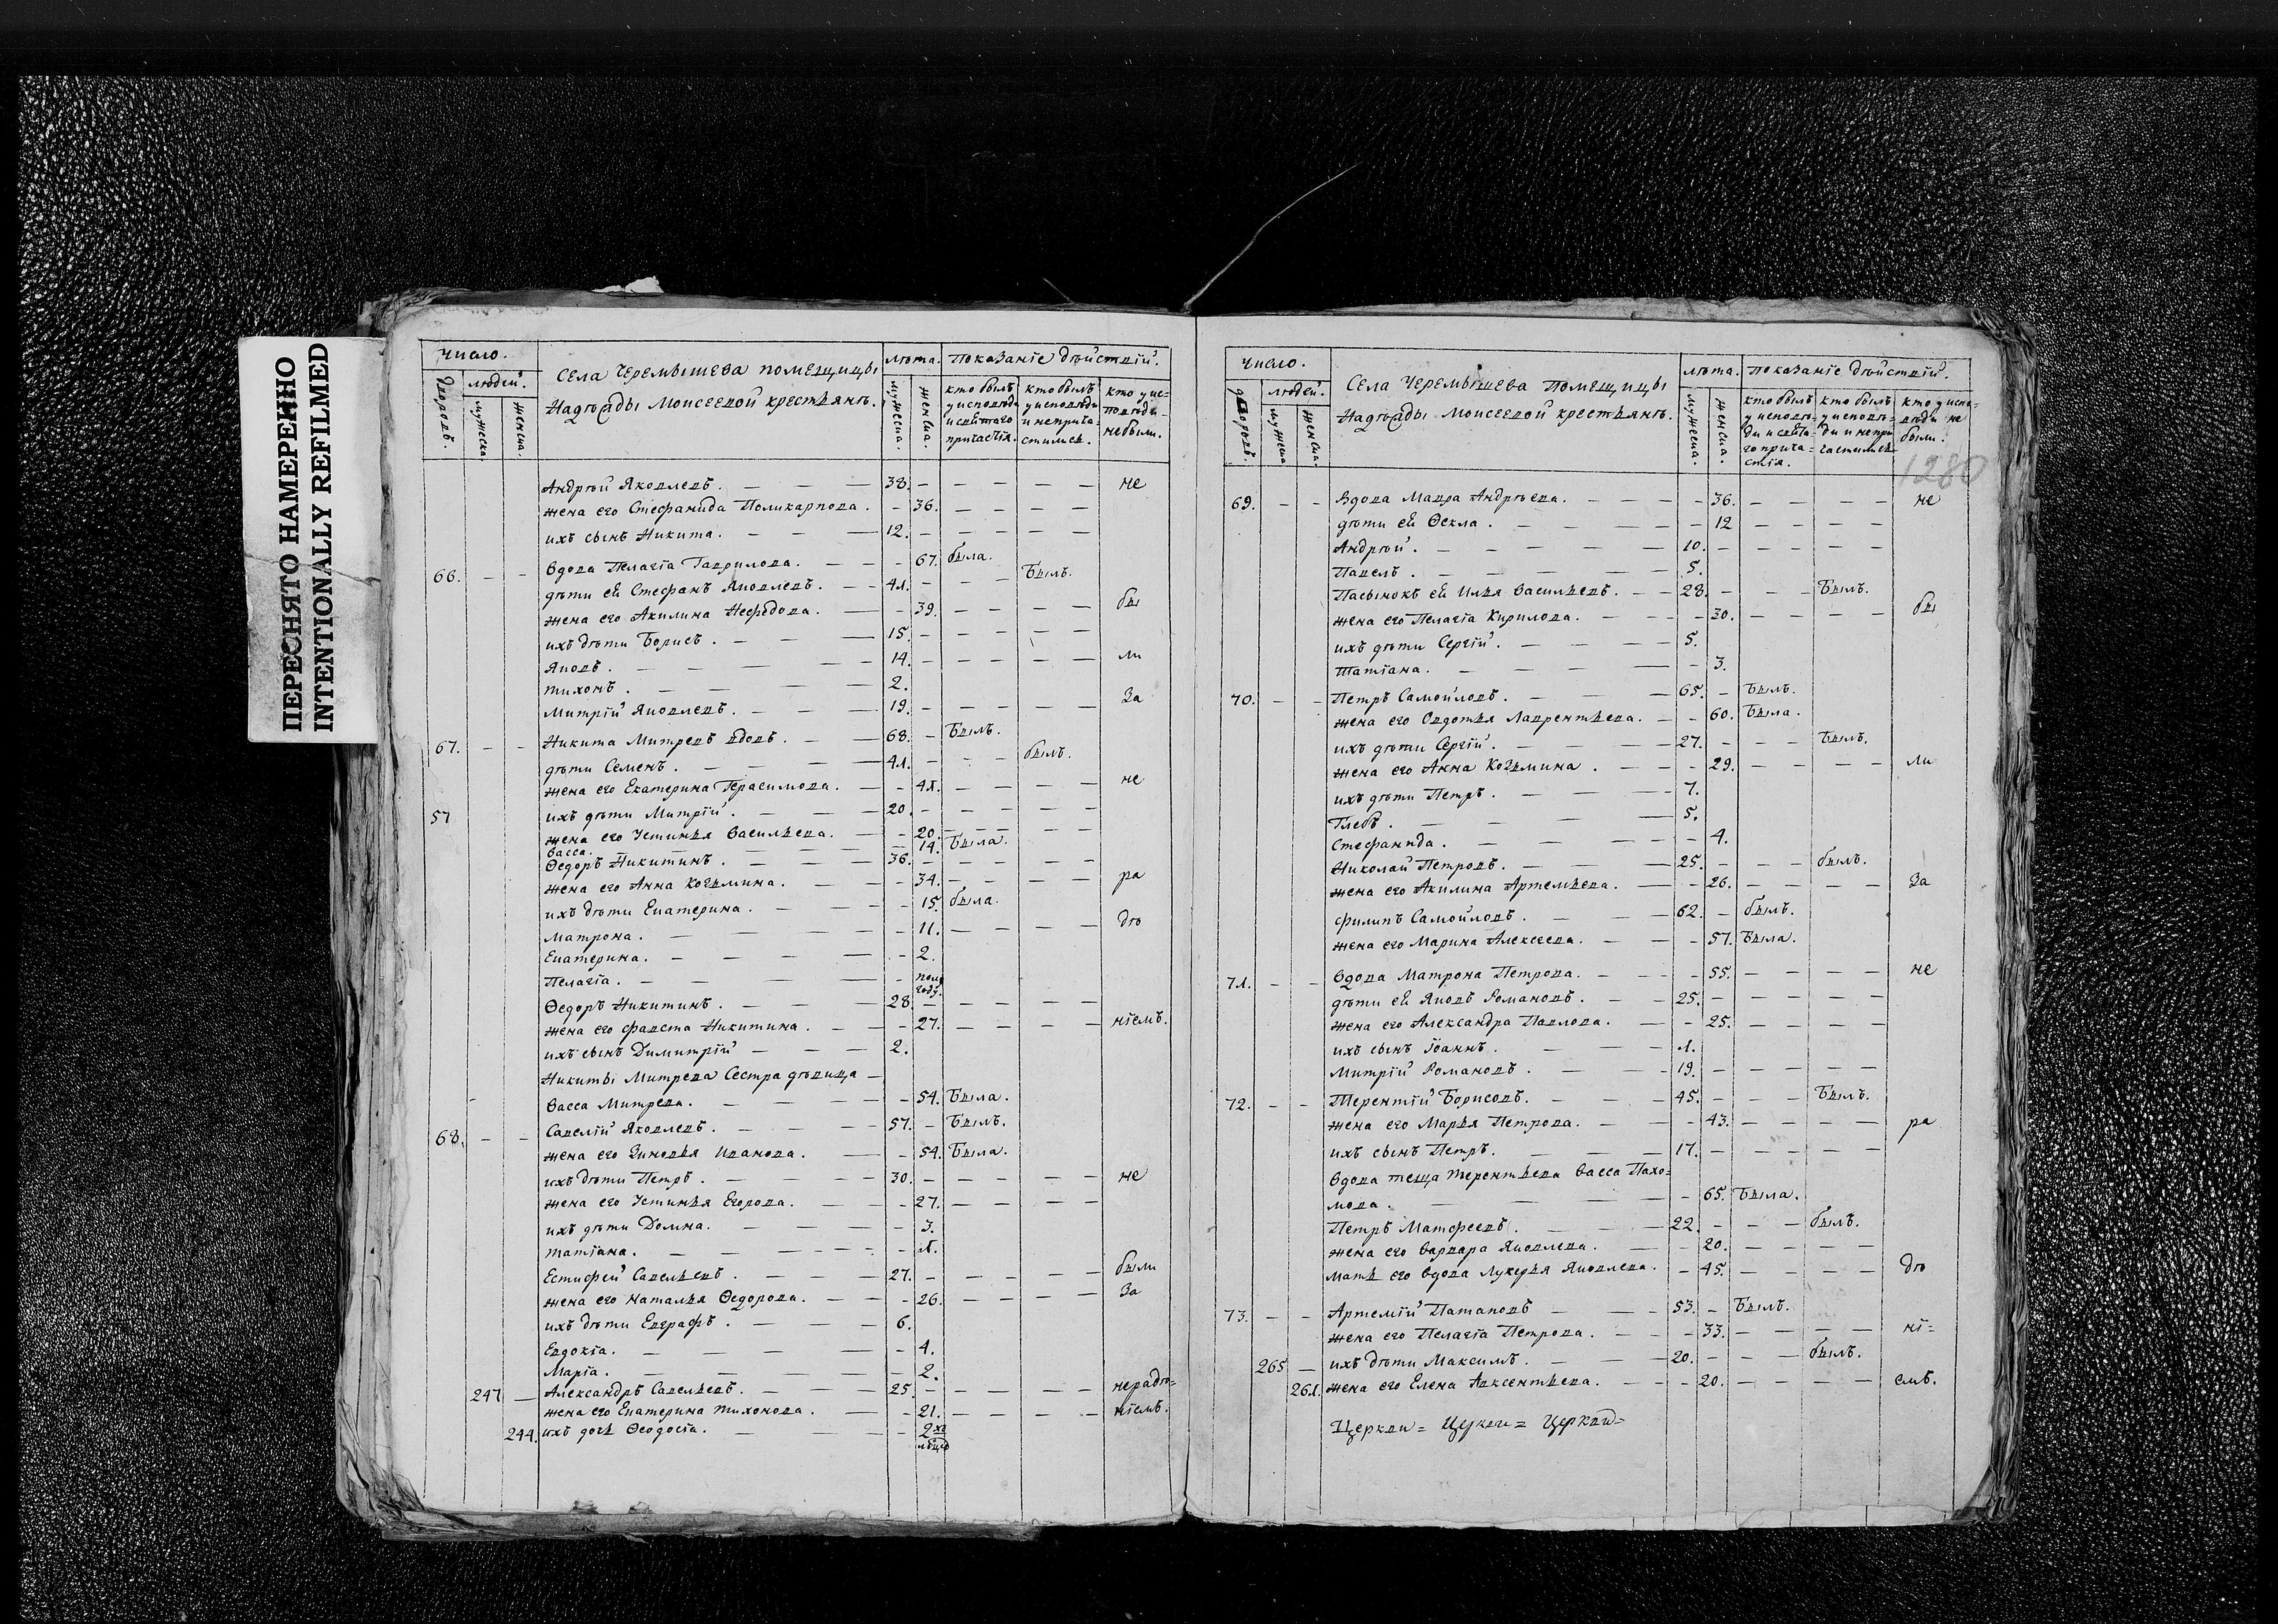 ПЕРЕСНЯТО НАМЕРЕННО
INTENTIONALLY REFILMED
Число. Села Черемышева помещицы Надѣжды Моисеевой крестьянъ. Лѣта. Показаніе дѣйствій.
Дворовъ. людей. мужеска. женска. мужеска. женска. кто былъ у исповѣди и святаго причастія. кто былъ у исповѣди и не причастился. кто у исповѣди не были.
Андрѣй Яковлевъ. 38. не
жена его Стефанида Поликарпова. 36.
ихъ сынъ Никита. 12.
66. Вдова Пелагія Гаврилова. 67. была.
дѣти ей Стефанъ Яковлевъ. 41. Былъ.
жена его Акилина Нефедова. 39. бы
ихъ дѣти Борисъ. 15.
Яковъ. 14. ли
тихонъ. 2.
Митрій Яковлевъ. 19. За
67. Никита Митревъ вдовъ. 68. Былъ.
дѣти Семенъ. 41. былъ.
жена его Екатерина Герасимова. 41. не
57 ихъ дѣти Митрій. 20.
жена его Устинья Васильева. 20.
Васса. 14. Была.
Ѳедоръ Никитинъ. 36.
жена его Анна Козьмина. 34. ра
ихъ дѣти Екатерина. 15. была.
Матрона. 11. дѣ
Екатерина. 2.
Пелагія. пол годӯ.
Ѳедоръ Никитинъ. 28
жена его Фавста Никитина. 27. ніемъ.
ихъ сынъ Димитрій 2.
Никиты Митрева Сестра дѣвица
Васса Митрева. 54. Была.
68. Савелій Яковлевъ. 57. Былъ.
жена его Зиновья Иванова. 54. Была.
ихъ дѣти Петръ. 30. не
жена его Устинья Егорова. 27.
ихъ дѣти Домна. 3.
татіана. 1.
Естифей Савельевъ. 27. были
жена его Наталья Ѳедорова. 26. За
ихъ дѣти Евграфъ. 6.
Евдокіа. 4.
Маріа. 2.
247 Александръ Савельевъ. 25. нерадѣ=
жена его Екатерина тихонова. 21. ніемъ.
244. ихъ дочь Ѳеодосіа. 2хъ мѣцъ
Число. Села Черемышева Помещицы Надѣжды Моисеевой крестьянъ. Лѣта. Показаніе дѣйствій.
дворовъ. людей. мужеска женска. мужеска. женска. кто былъ у исповѣди и святаго причастія. кто былъ у исповѣди и не причастился кто у исповѣди не были.
1280
69. Вдова Мавра Андрѣева. 36. не
дѣти ей Ѳекла. 12
Андрѣй. 10.
Павелъ. 5.
Пасынокъ ей Илья Васильевъ. 28. Былъ.
жена его Пелагіа Кирилова. 30. бы
ихъ дѣти Сергій. 5.
татіана. 3.
70. Петръ Самойловъ. 65. Былъ.
жена его Овдотья Лаврентьева. 60. Была.
ихъ дѣти Сергій. 27. Былъ.
жена его Анна Козьмина. 29. ли
ихъ дѣти Петръ. 7.
Глебъ. 5.
Стефанида. 4.
Николай Петровъ. 25. былъ.
жена его Акилина Артемьева. 26. За
Филипъ Самойловъ. 62. былъ.
жена его Марина Алексеева. 57. Была.
71. Вдова Матрона Петрова. 55. не
дѣти ей Яковъ Романовъ. 25.
жена его Александра Павлова. 25.
ихъ сынъ Іоаннъ. 1.
Митрій Романовъ. 19.
72. Терентій Борисовъ. 45. Былъ.
жена его Марья Петрова. 43. ра
ихъ сынъ Петръ. 17.
Вдова теща терентьева Васса Пахо=
мова. 65. Была.
Петръ Матфеевъ. 22. былъ.
жена его Варвара Яковлева. 20.
мать его вдова Лукерья Яковлева. 45. дѣ
73. Артемій Патаповъ 53. Былъ.
жена его Пелагіа Петрова. 33. ні=
265 ихъ дѣти Максимъ. 20. былъ.
261. жена его Елена Авксентьева. 20. емъ.
Церкви= Церкви= Церкви=